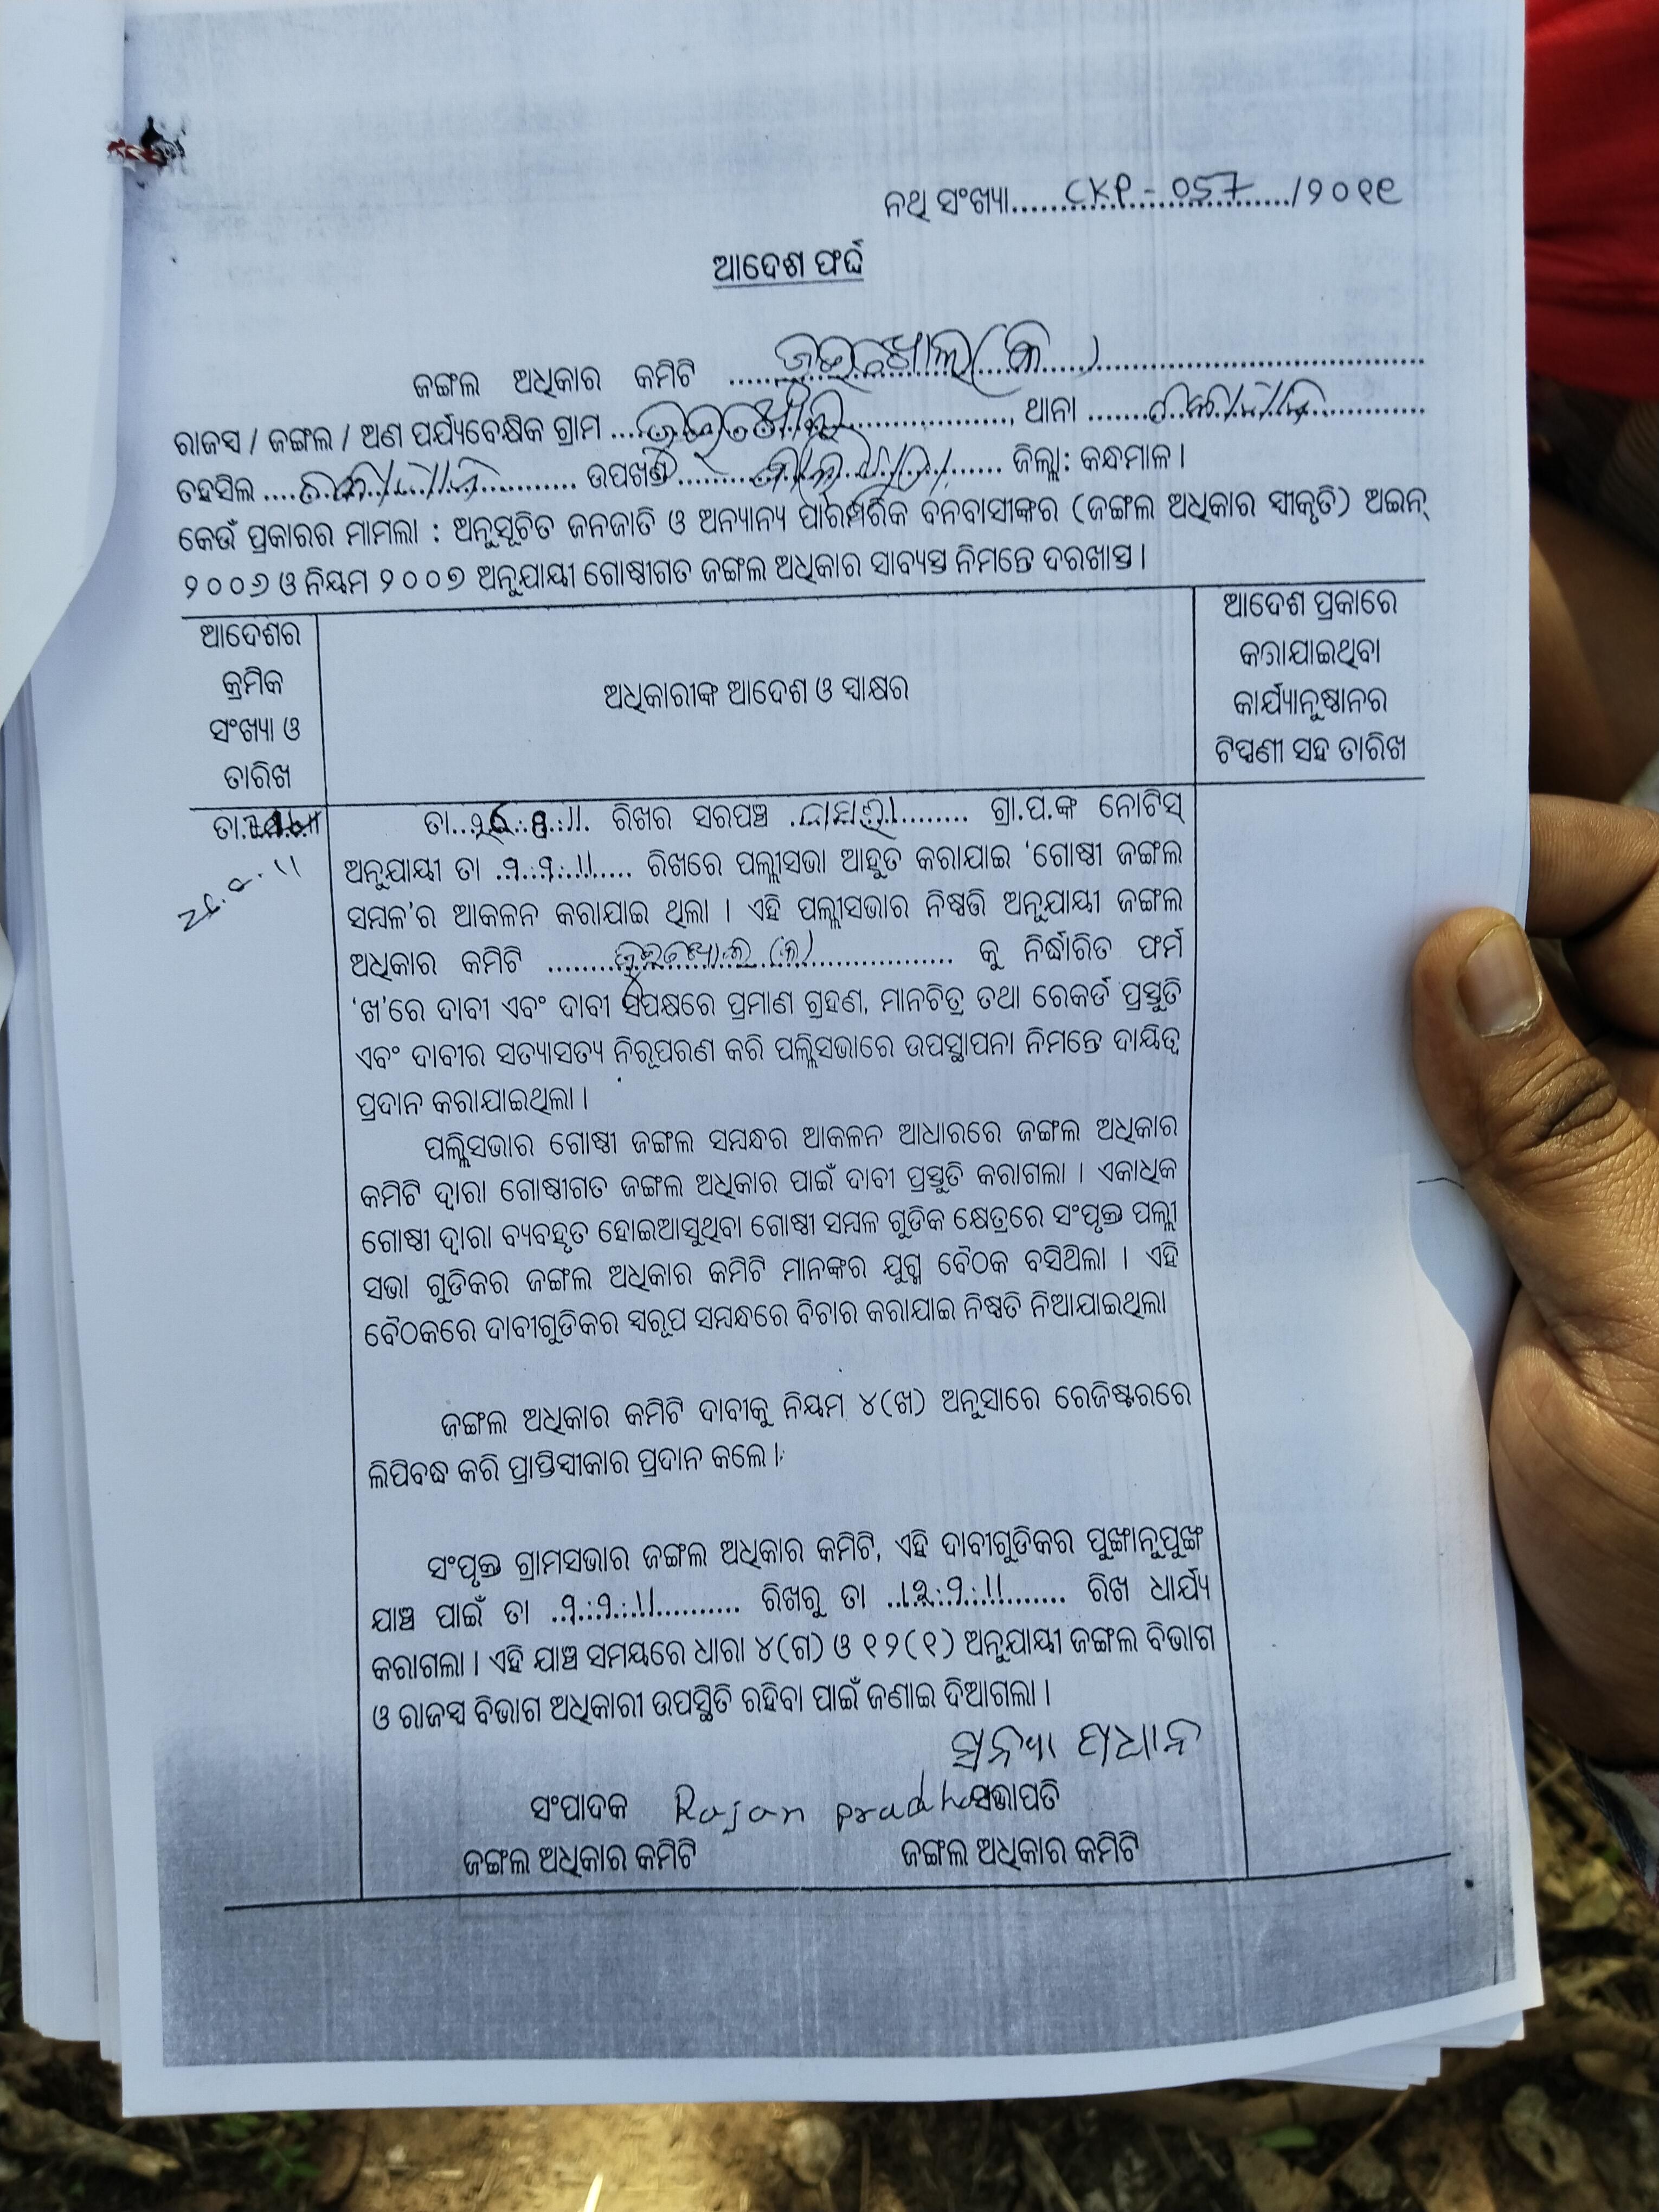 ନଥି ସଂଖ୍ୟା CKP - 057 /୨୦୧୧
ଆଦେଶ ଫର୍ଦ୍ଦ
ଜଙ୍ଗଲ ଅଧିକାର କମିଟି
ରାଜସ୍ୱ / ଜଙ୍ଗଲ / ଅଣ ପର୍ଯ୍ୟବେକ୍ଷିକ ଗ୍ରାମ , ଥାନା
ତହସିଲ ଉପଖଣ୍ଡ ଜିଲ୍ଲା: କନ୍ଧମାଳ ।
କେଉଁ ପ୍ରକାରର ମାମଲା : ଅନୁସୂଚିତ ଜନଜାତି ଓ ଅନ୍ୟାନ୍ୟ ପାରମ୍ପରିକ ବନବାସୀଙ୍କର (ଜଙ୍ଗଲ ଅଧିକାର ସ୍ୱୀକୃତି) ଅଇନ୍
୨୦୦୬ ଓ ନିୟମ ୨୦୦୭ ଅନୁଯାୟୀ ଗୋଷ୍ଠୀଗତ ଜଙ୍ଗଲ ଅଧିକାର ସାବ୍ୟସ୍ତ ନିମନ୍ତେ ଦରଖାସ୍ତ ।
ଆଦେଶର
କ୍ରମିକ
ସଂଖ୍ୟା ଓ
ତାରିଖ
ଅଧିକାରୀଙ୍କ ଆଦେଶ ଓ ସ୍ୱାକ୍ଷର
ଆଦେଶ ପ୍ରକାରେ
କରାଯାଇଥିବା
କାର୍ଯ୍ୟାନୁଷ୍ଠାନର
ଟିପ୍ପଣୀ ସହ ତାରିଖ
ତା.
ତା. ରିଖର ସରପଞ୍ଚ ଗ୍ରା.ପ.ଙ୍କ ନୋଟିସ୍
ଅନୁଯାୟୀ ତା .୨.୨.11 ରିଖରେ ପଲ୍ଲୀସଭା ଆହୁତ କରାଯାଇ ‘ଗୋଷ୍ଠୀ ଜଙ୍ଗଲ
ସମ୍ବଳ’ର ଆକଳନ କରାଯାଇ ଥିଲା । ଏହି ପଲ୍ଲୀସଭାର ନିଷ୍ପତ୍ତି ଅନୁଯାୟୀ ଜଙ୍ଗଲ
ଅଧିକାର କମିଟି କୁ ନିର୍ଦ୍ଧାରିତ ଫର୍ମ
‘ଖ’ରେ ଦାବୀ ଏବଂ ଦାବୀ ସପକ୍ଷରେ ପ୍ରମାଣ ଗ୍ରହଣ, ମାନଚିତ୍ର ତଥା ରେକର୍ଡ ପ୍ରସ୍ତୁତି
ଏବଂ ଦାବୀର ସତ୍ୟାସତ୍ୟ ନିରୂପରଣ କରି ପଲ୍ଲିସଭାରେ ଉପସ୍ଥାପନା ନିମନ୍ତେ ଦାୟିତ୍ୱ
ପ୍ରଦାନ କରାଯାଇଥିଲା ।
ପଲ୍ଲିସଭାର ଗୋଷ୍ଠୀ ଜଙ୍ଗଲ ସମ୍ବନ୍ଧର ଆକଳନ ଆଧାରରେ ଜଙ୍ଗଲ ଅଧିକାର
କମିଟି ଦ୍ୱାରା ଗୋଷ୍ଠୀଗତ ଜଙ୍ଗଲ ଅଧିକାର ପାଇଁ ଦାବୀ ପ୍ରସ୍ତୁତି କରାଗଲା । ଏକାଧିକ
ଗୋଷ୍ଠୀ ଦ୍ୱାରା ବ୍ୟବହୃତ ହୋଇଆସୁଥିବା ଗୋଷ୍ଠୀ ସମ୍ବଳ ଗୁଡିକ କ୍ଷେତ୍ରରେ ସଂପୃକ୍ତ ପଲ୍ଲୀ
ସଭା ଗୁଡିକର ଜଙ୍ଗଲ ଅଧିକାର କମିଟି ମାନଙ୍କର ଯୁଗ୍ମ ବୈଠକ ବସିଥିଲା । ଏହି
ବୈଠକରେ ଦାବୀଗୁଡିକର ସ୍ୱରୂପ ସମ୍ବନ୍ଧରେ ବିଚାର କରାଯାଇ ନିଷ୍ପତି ନିଆଯାଇଥିଲା
ଜଙ୍ଗଲ ଅଧିକାର କମିଟି ଦାବୀକୁ ନିୟମ ୪(ଖ) ଅନୁସାରେ ରେଜିଷ୍ଟରରେ
ଲିପିବଦ୍ଧ କରି ପ୍ରାପ୍ତିସ୍ୱୀକାର ପ୍ରଦାନ କଲେ ।
ସଂପୃକ୍ତ ଗ୍ରାମସଭାର ଜଙ୍ଗଲ ଅଧିକାର କମିଟି, ଏହି ଦାବୀଗୁଡିକର ପୁଙ୍ଖାନୁପୁଙ୍ଖ
ଯାଞ୍ଚ ପାଇଁ ତା .୨.୨.11 ରିଖରୁ ତା ରିଖ ଧାର୍ଯ୍ୟ
କରାଗଲା । ଏହି ଯାଞ୍ଚ ସମୟରେ ଧାରା ୪(ଗ) ଓ ୧୨(୧) ଅନୁଯାୟୀ ଜଙ୍ଗଲ ବିଭାଗ
ଓ ରାଜସ୍ୱ ବିଭାଗ ଅଧିକାରୀ ଉପସ୍ଥିତି ରହିବା ପାଇଁ ଜଣାଇ ଦିଆଗଲା ।
ପ୍ରଧାନ
ସଂପାଦକ Rajan pradhan ସଭାପତି
ଜଙ୍ଗଲ ଅଧିକାର କମିଟି ଜଙ୍ଗଲ ଅଧିକାର କମିଟି